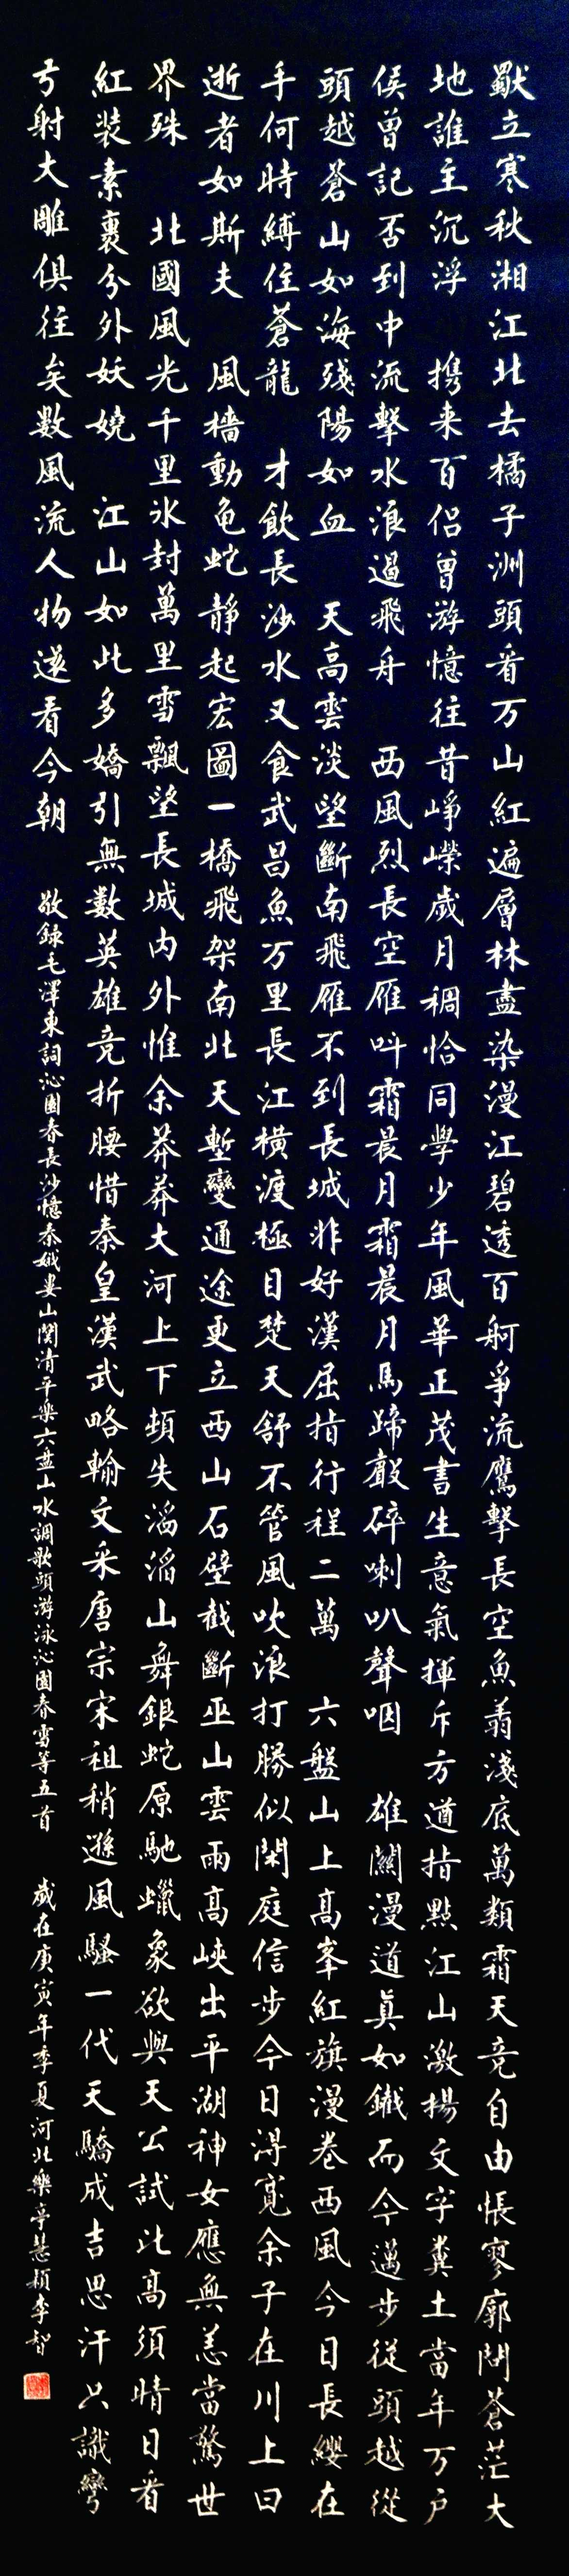 獨立寒秋湘江北去橘子洲頭看万山紅遍層林盡染漫江碧透百舸爭流鷹擊長空魚翔淺底萬類霜天竞自由悵寥廓問蒼茫大
地誰主沉浮 携来百侣曾游憶往昔崢嶸歲月稠恰同學少年風華正茂書生意氣揮斥方遒指點江山激揚文字糞土當年万户
侯曾記否到中流擊水浪遏飛舟 西風烈長空雁叫霜晨月霜晨月馬蹄聲碎喇叭聲咽 雄關漫道真如鐵而今邁步從頭越從
頭越蒼山如海殘陽如血 天高雲淡望斷南飛雁不到長城非好漢屈指行程二萬 六盤山上高峯紅旗漫卷西風今日長纓在
手何時縛住蒼龍 才飲長沙水又食武昌魚万里長江橫渡極目楚天舒不管風吹浪打勝似閑庭信步今日得寬余子在川上曰
逝者如斯夫 風檣動龟蛇靜起宏圖一橋飛架南北天塹變通途更立西山石壁截斷巫山雲雨高峽出平湖神女應無恙當驚世
界殊 北國風光千里冰封萬里雪飄望長城内外惟余莽莽大河上下頓失滔滔山舞銀蛇原馳蠟象欲與天公試比高須晴日看
紅装素裹分外妖嬈 江山如此多嬌引無數英雄竞折腰惜秦皇漢武略輸文采唐宗宋祖稍遜風騷一代天驕成吉思汗只識彎
弓射大雕俱往矣數風流人物還看今朝 敬録毛澤東詞沁園春長沙憶秦娥婁山関清平樂六盘山水調歌頭游泳沁園春雪等五首 歲在庚寅年季夏河北樂亭慧穎李智